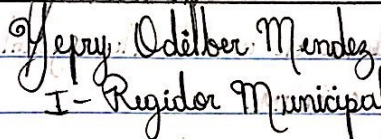 Yepry Odilber Mendez
I - Regidor Municipal